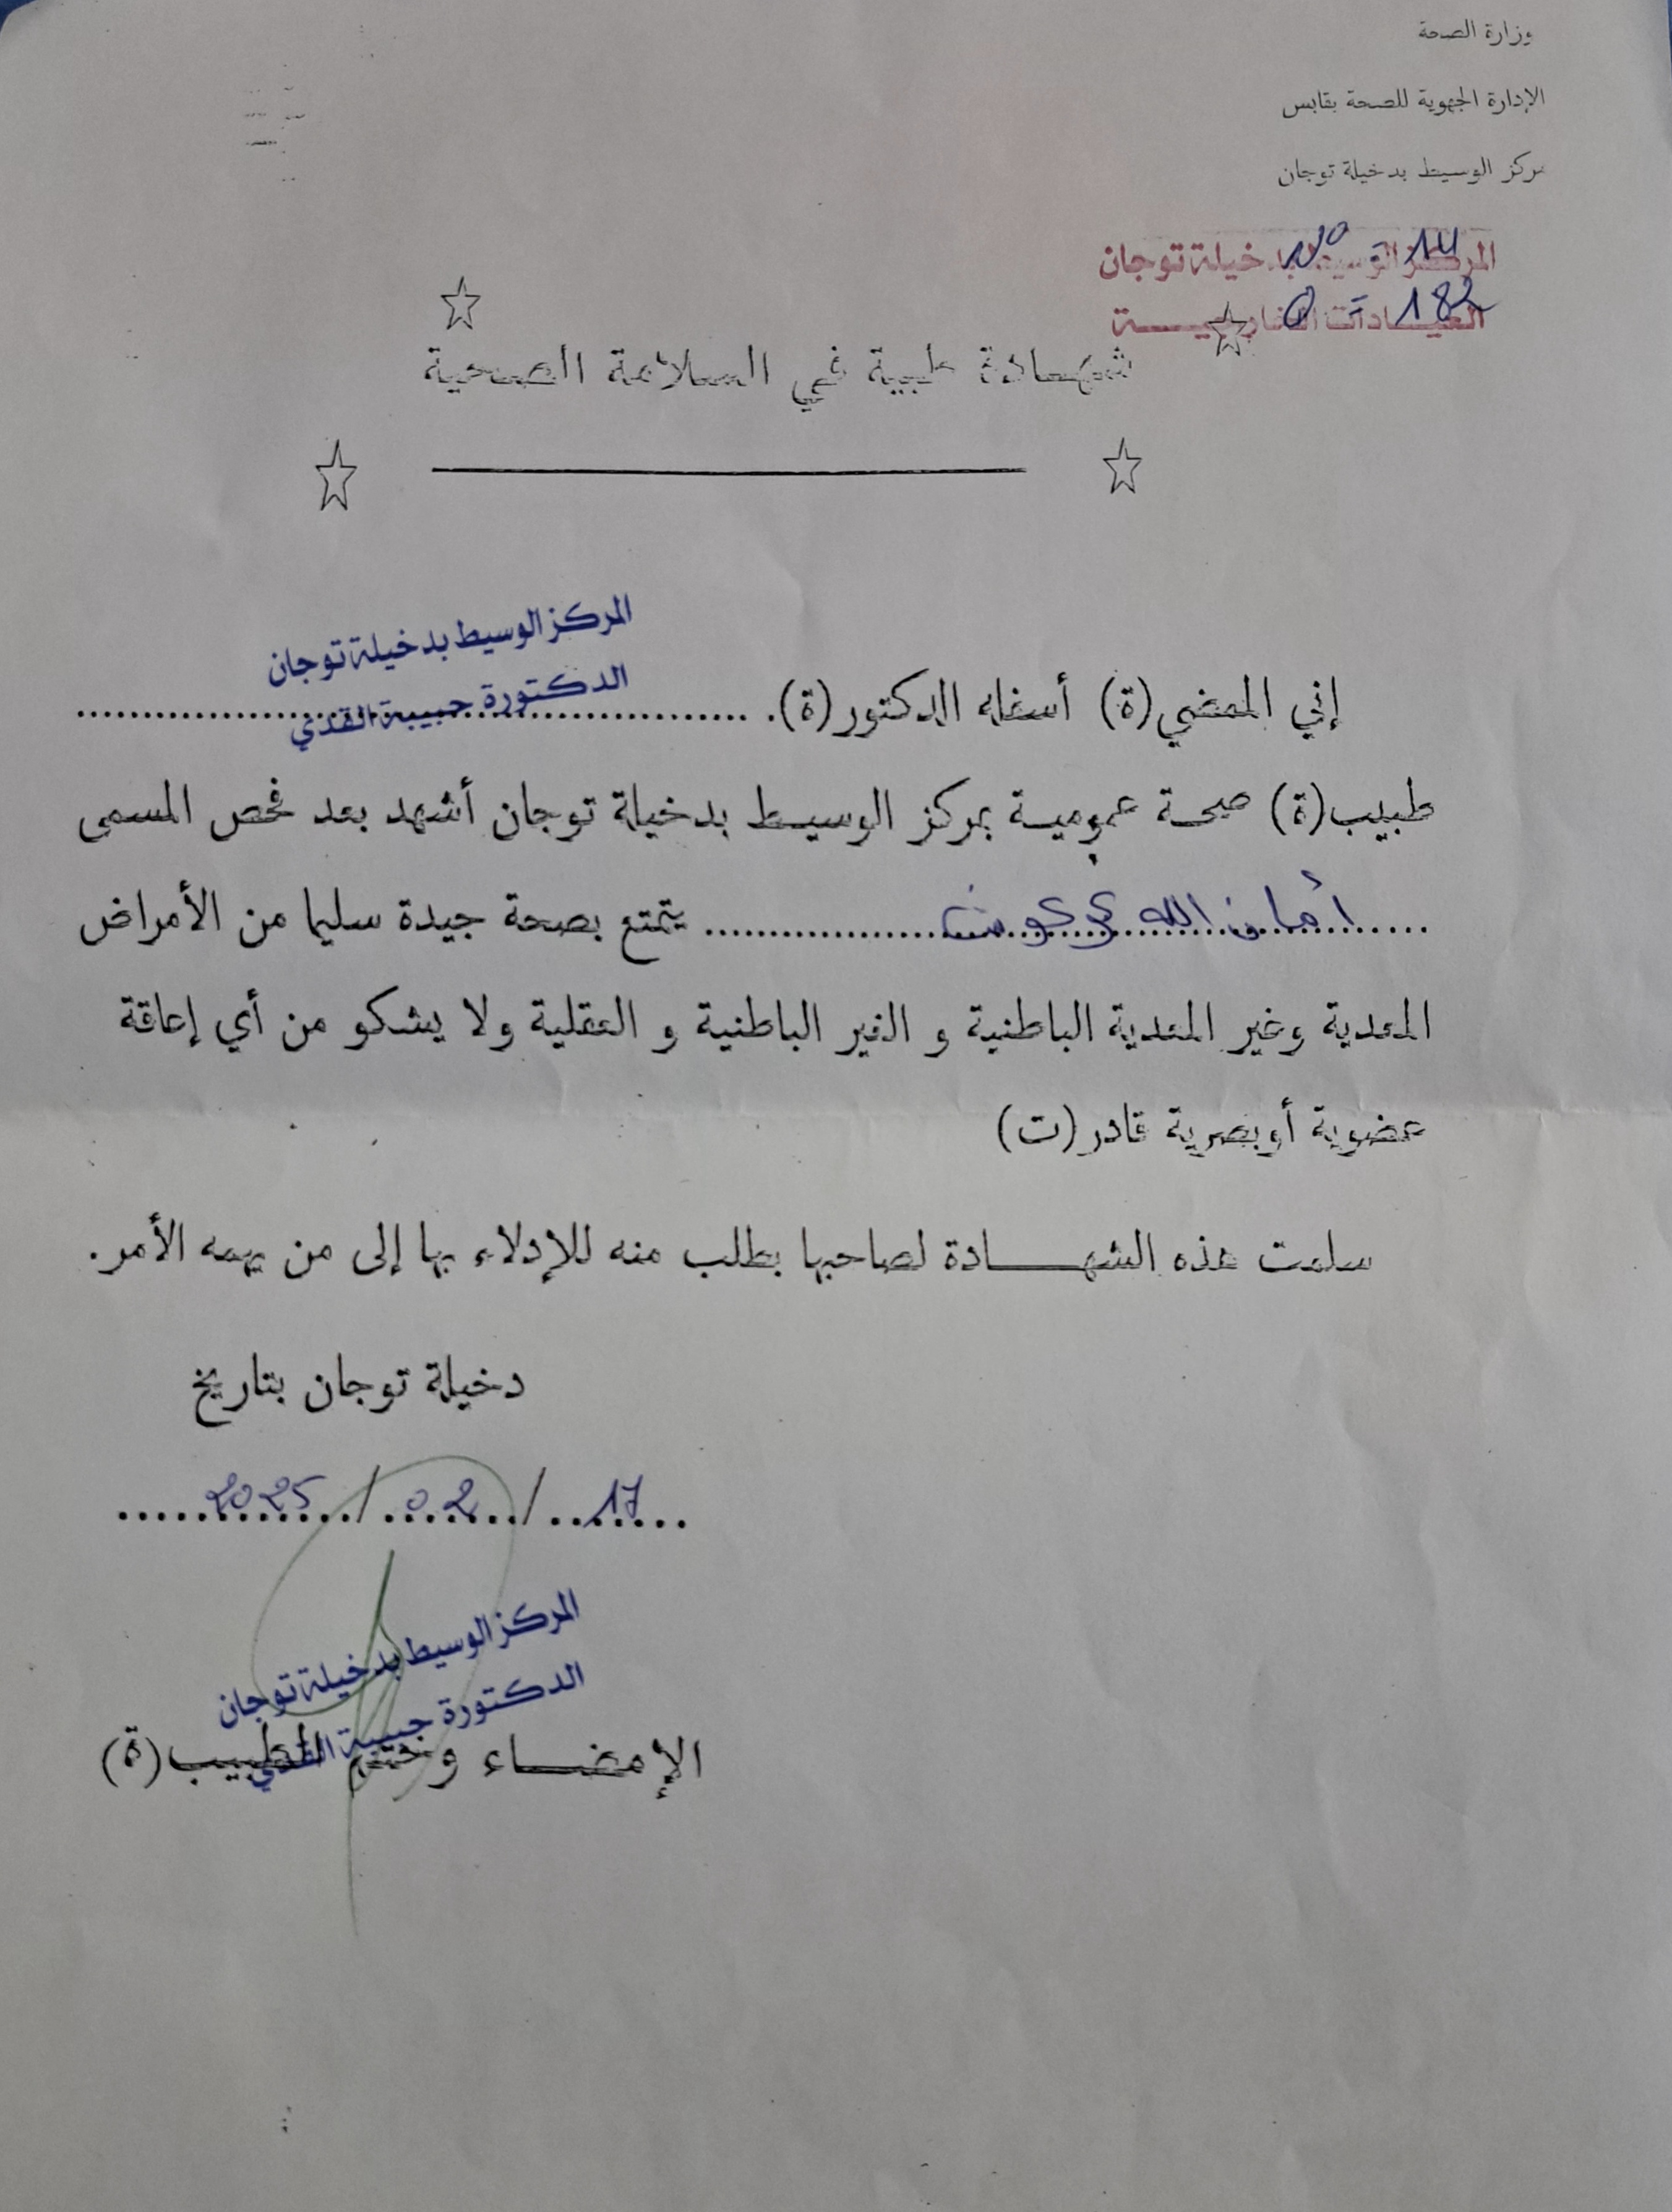 وزارة الصحة
الإدارة الجهوية للصحة بقابس
مركز الوسيط بدخيلة توجان
المركز الوسيط بدخيلة توجان
N° - 14
العيادات الخارجية
182
شهادة طبية في السلامة الصحية
المركز الوسيط بدخيلة توجان
الدكتورة حبيبة القذي
إني الممضي(ة) أسفله الدكتور(ة). ....................
طبيب(ة) صحة عمومية بمركز الوسيط بدخيلة توجان أشهد بعد فحص المسمى
أمان الله ............ يتمتع بصحة جيدة سليما من الأمراض
المعدية وغير المعدية الباطنية و الغير الباطنية و العقلية ولا يشكو من أي إعاقة
عضوية أو بصرية قادر(ت)
سلمت هذه الشهادة لصاحبها بطلب منه للإدلاء بها إلى من يهمه الأمر.
دخيلة توجان بتاريخ
17 / 02 / 2025
المركز الوسيط بدخيلة توجان
الدكتورة حبيبة القذي
الإمضاء وختم الطبيب(ة)